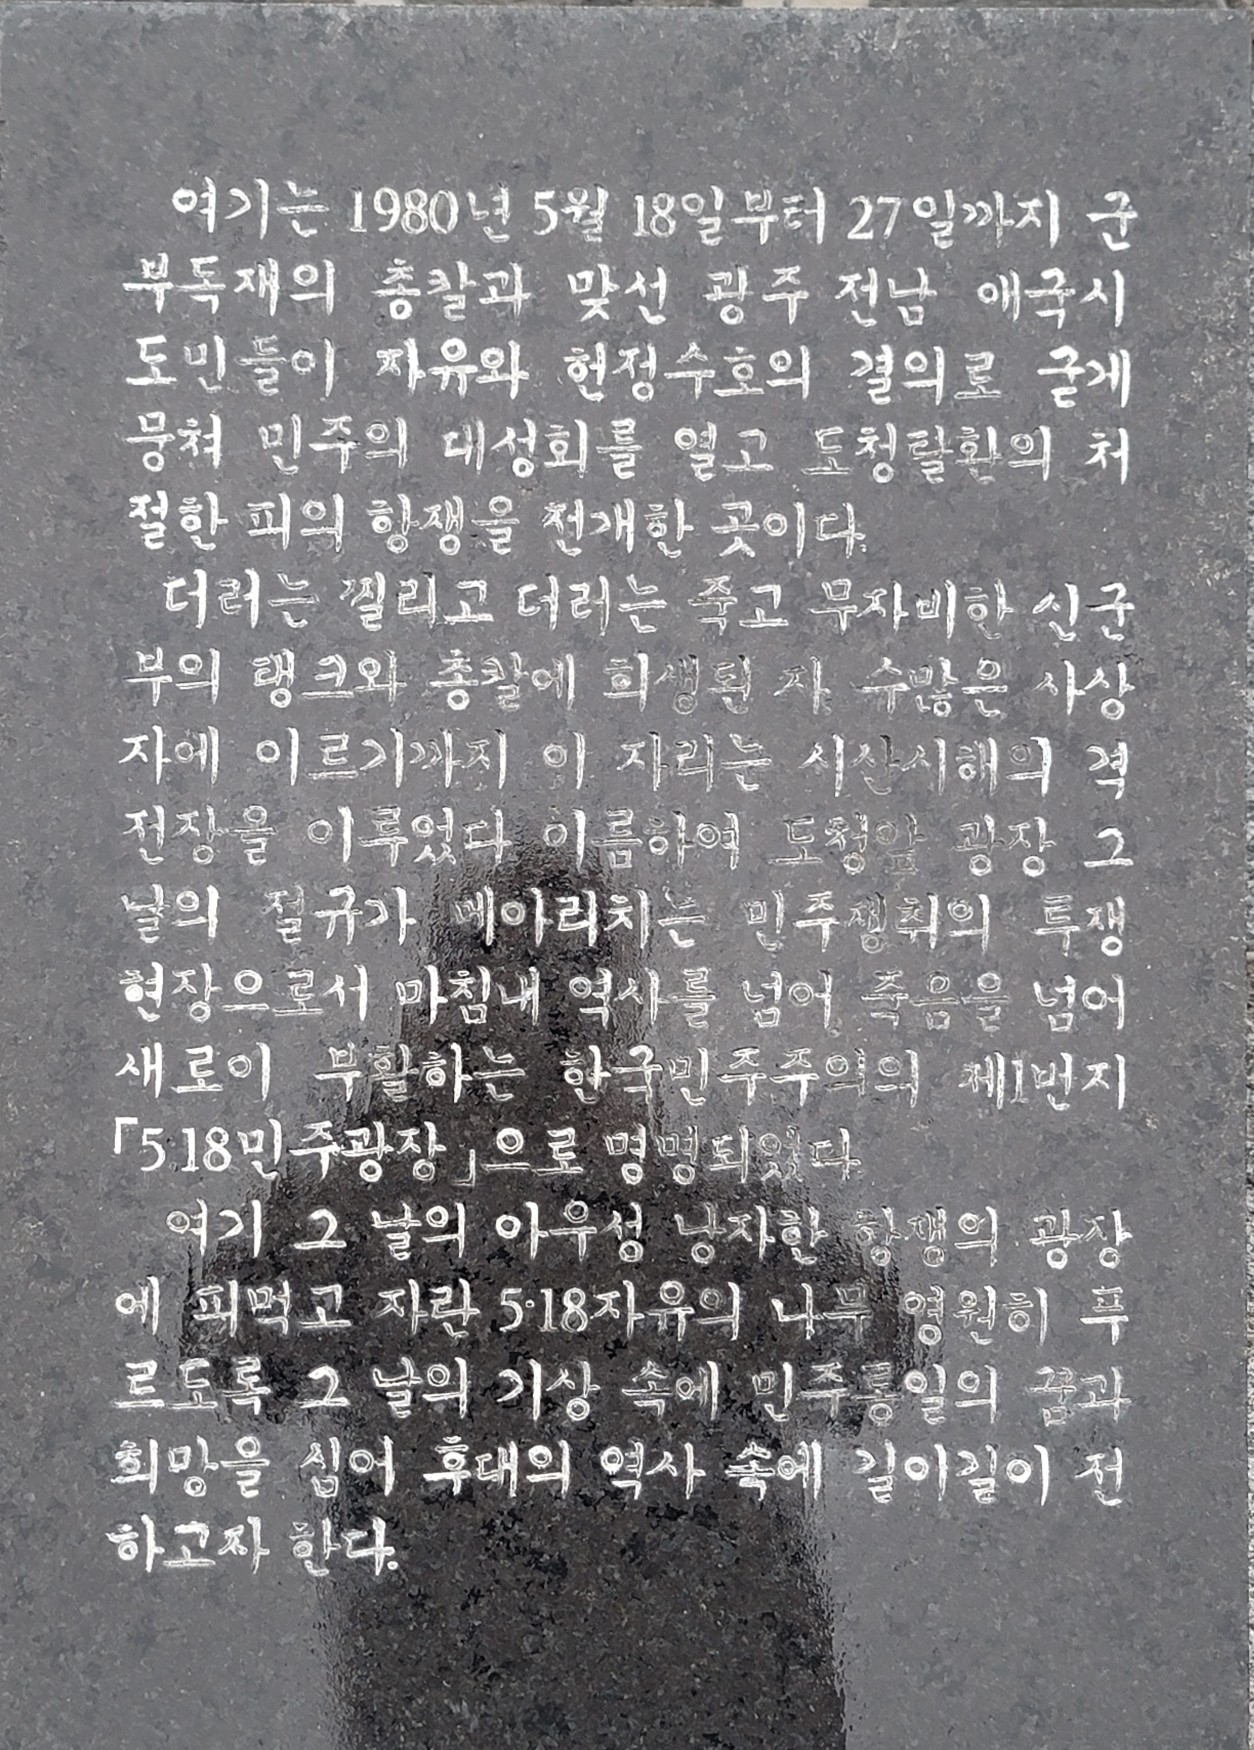 여기는 1980년 5월 18일부터 27일까지 군
부독재의 총칼과 맞선 광주 전남 애국시
도민들이 자유와 헌정수호의 결의로 굳게
뭉쳐 민주의 대성회를 열고 도청탈환의 처
절한 피의 항쟁을 전개한 곳이다.
더러는 찔리고 더러는 죽고 무자비한 신군
부의 탱크와 총칼에 희생된 자 수많은 사상
자에 이르기까지 이 자리는 시산시해의 격
전장을 이루었다 이름하여 도청앞 광장 그
날의 절규가 메아리치는 민주쟁취의 투쟁
현장으로서 마침내 역사를 넘어 죽음을 넘어
새로이 부활하는 한국민주주의의 제1번지
「5.18민주광장」으로 명명되었다.
여기 그 날의 아우성 낭자한 항쟁의 광장
에 피먹고 자란 5·18자유의 나무 영원히 푸
르도록 그 날의 기상 속에 민주통일의 꿈과
희망을 심어 후대의 역사 속에 길이길이 전
하고자 한다.